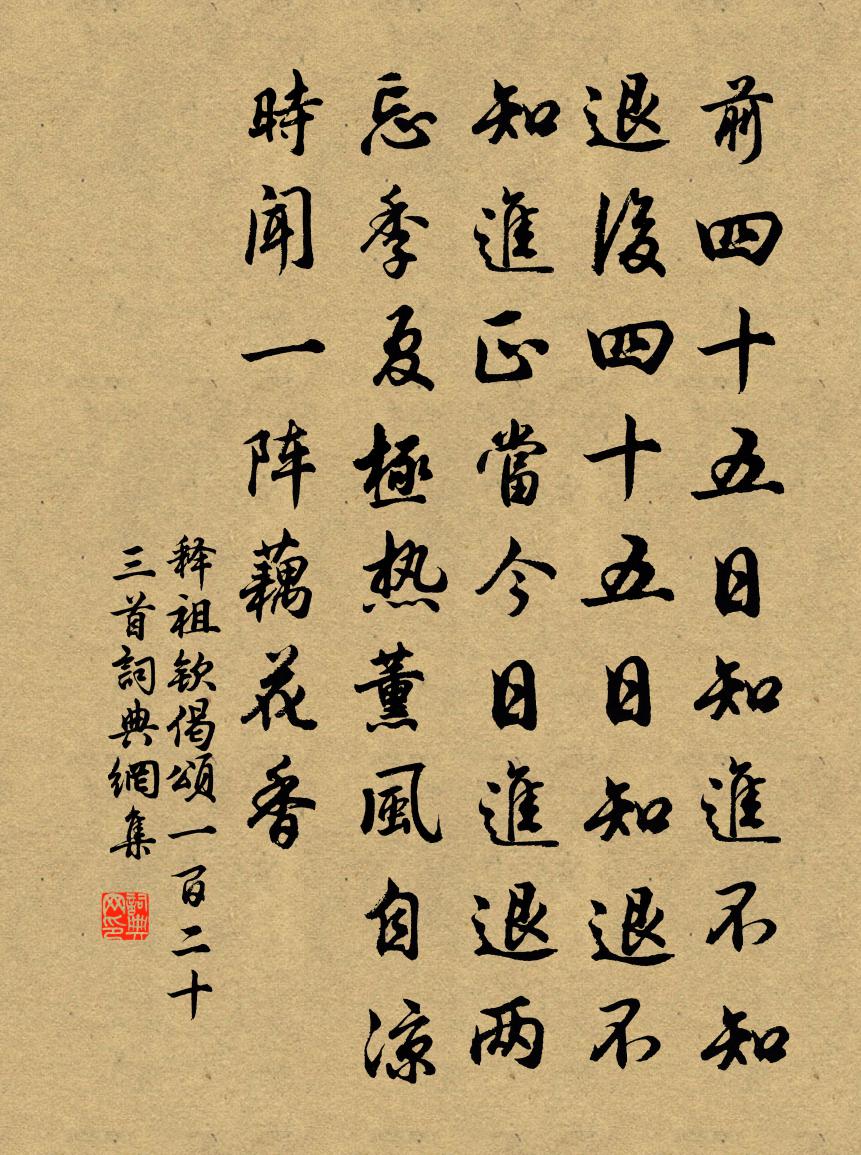 前四十五日知進不知
退後四十五日知退不
知進正當今日進退两
忘季夏極热薰風自凉
時聞一阵藕花香
释祖钦偈頌一百二十
三首詞典網集
詞典
网印